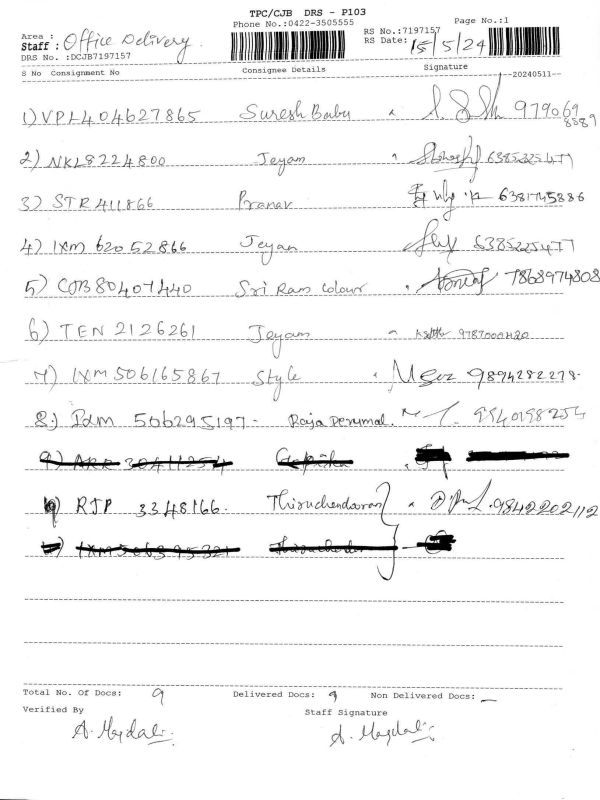 TPC/CJB DRS - P103
Phone No.:0422-3505555 Page No.:1
Area : RS No.:7197157
Staff : Office Delivery. RS Date: 15/5/24
DRS No. :DCJB7197157
S No Consignment No Consignee Details Signature
--20240511--
1) VPL404627865 Suresh Babu 979069 8389
2) NKL8224800 Jeyam 6385225477
3) STR 411866 Pranav 6381745886
4) IXM 62052866 Jeyam 6385225477
5) CJB80407440 Sri Ram Colour 7868974808
6) TEN 2126261 Jeyam
7) IXM506165867 Style 9894282278-
8) 506295197- Raja Perumal. 9840198254
9) 30411254 Gopika
RJP 3348166. Thiruchendaran 9842202112
Total No. Of Docs: 9 Delivered Docs: 9 Non Delivered Docs: —
Verified By Staff Signature
A. Magdali A. Magdali